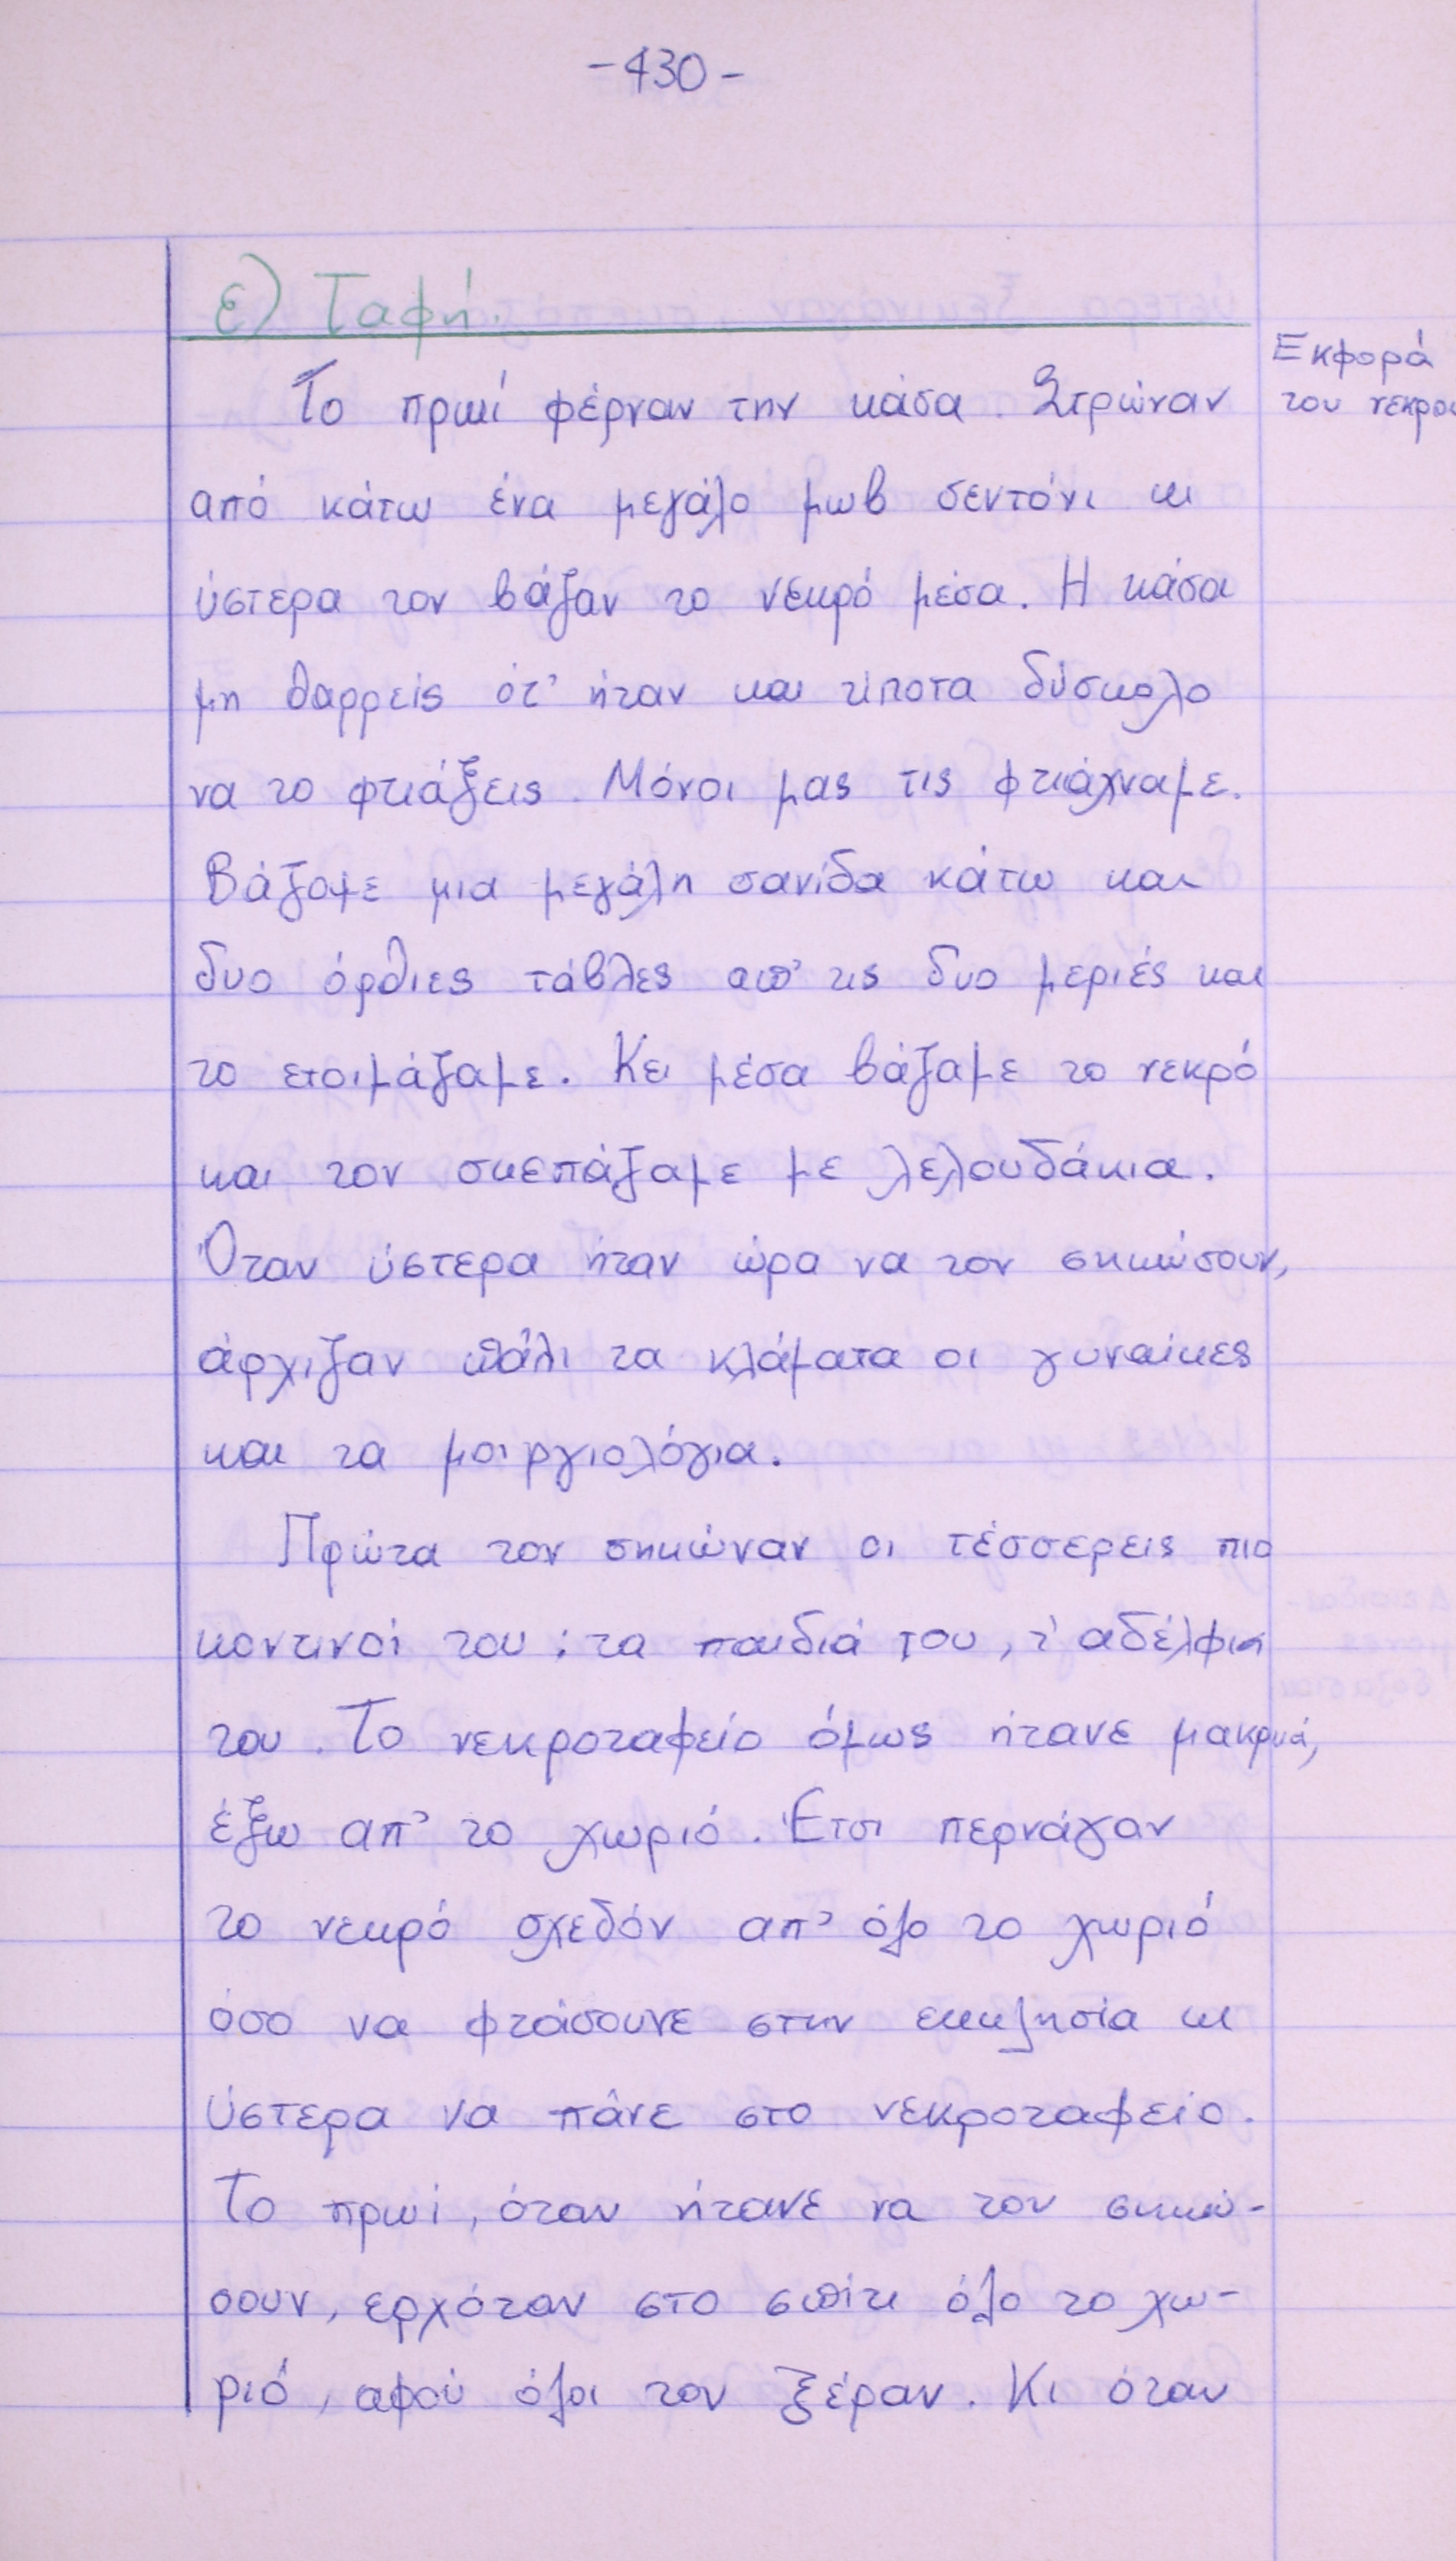 -430-
ε) Ταφή.
Εκφορά
του νεκρού
Το πρωί φέρναν την κάσα. Στρώναν
από κάτω ένα μεγάλο μωβ σεντόνι κι
ύστερα τον βάζαν το νεκρό μέσα. Η κάσα
μη θαρρείς ότ' ήταν και τίποτα δύσκολο
να το φτιάξεις. Μόνοι μας τις φτιάχναμε.
Βάζαμε μια μεγάλη σανίδα κάτω και
δυο όρθιες τάβλες απ' τις δυο μεριές και
το ετοιμάζαμε. Κει μέσα βάζαμε το νεκρό
και τον σκεπάζαμε με λελουδάκια.
Όταν ύστερα ήταν ώρα να τον σηκώσουν,
άρχιζαν πάλι τα κλάματα οι γυναίκες
και τα μοιργιολόγια.
Πρώτα τον σηκώναν οι τέσσερεις πιο
κοντινοί του: τα παιδιά του, τ' αδέλφια
του. Το νεκροταφείο όμως ήτανε μακρυά,
έξω απ' το χωριό. Έτσι περνάγαν
το νεκρό σχεδόν απ' όλο το χωριό
όσο να φτάσουνε στην εκκλησία κι
ύστερα να πάνε στο νεκροταφείο.
Το πρωί, όταν ήτανε να τον σηκώ-
σουν, ερχόταν στο σπίτι όλο το χω-
ριό, αφού όλοι τον ξέραν. Κι όταν